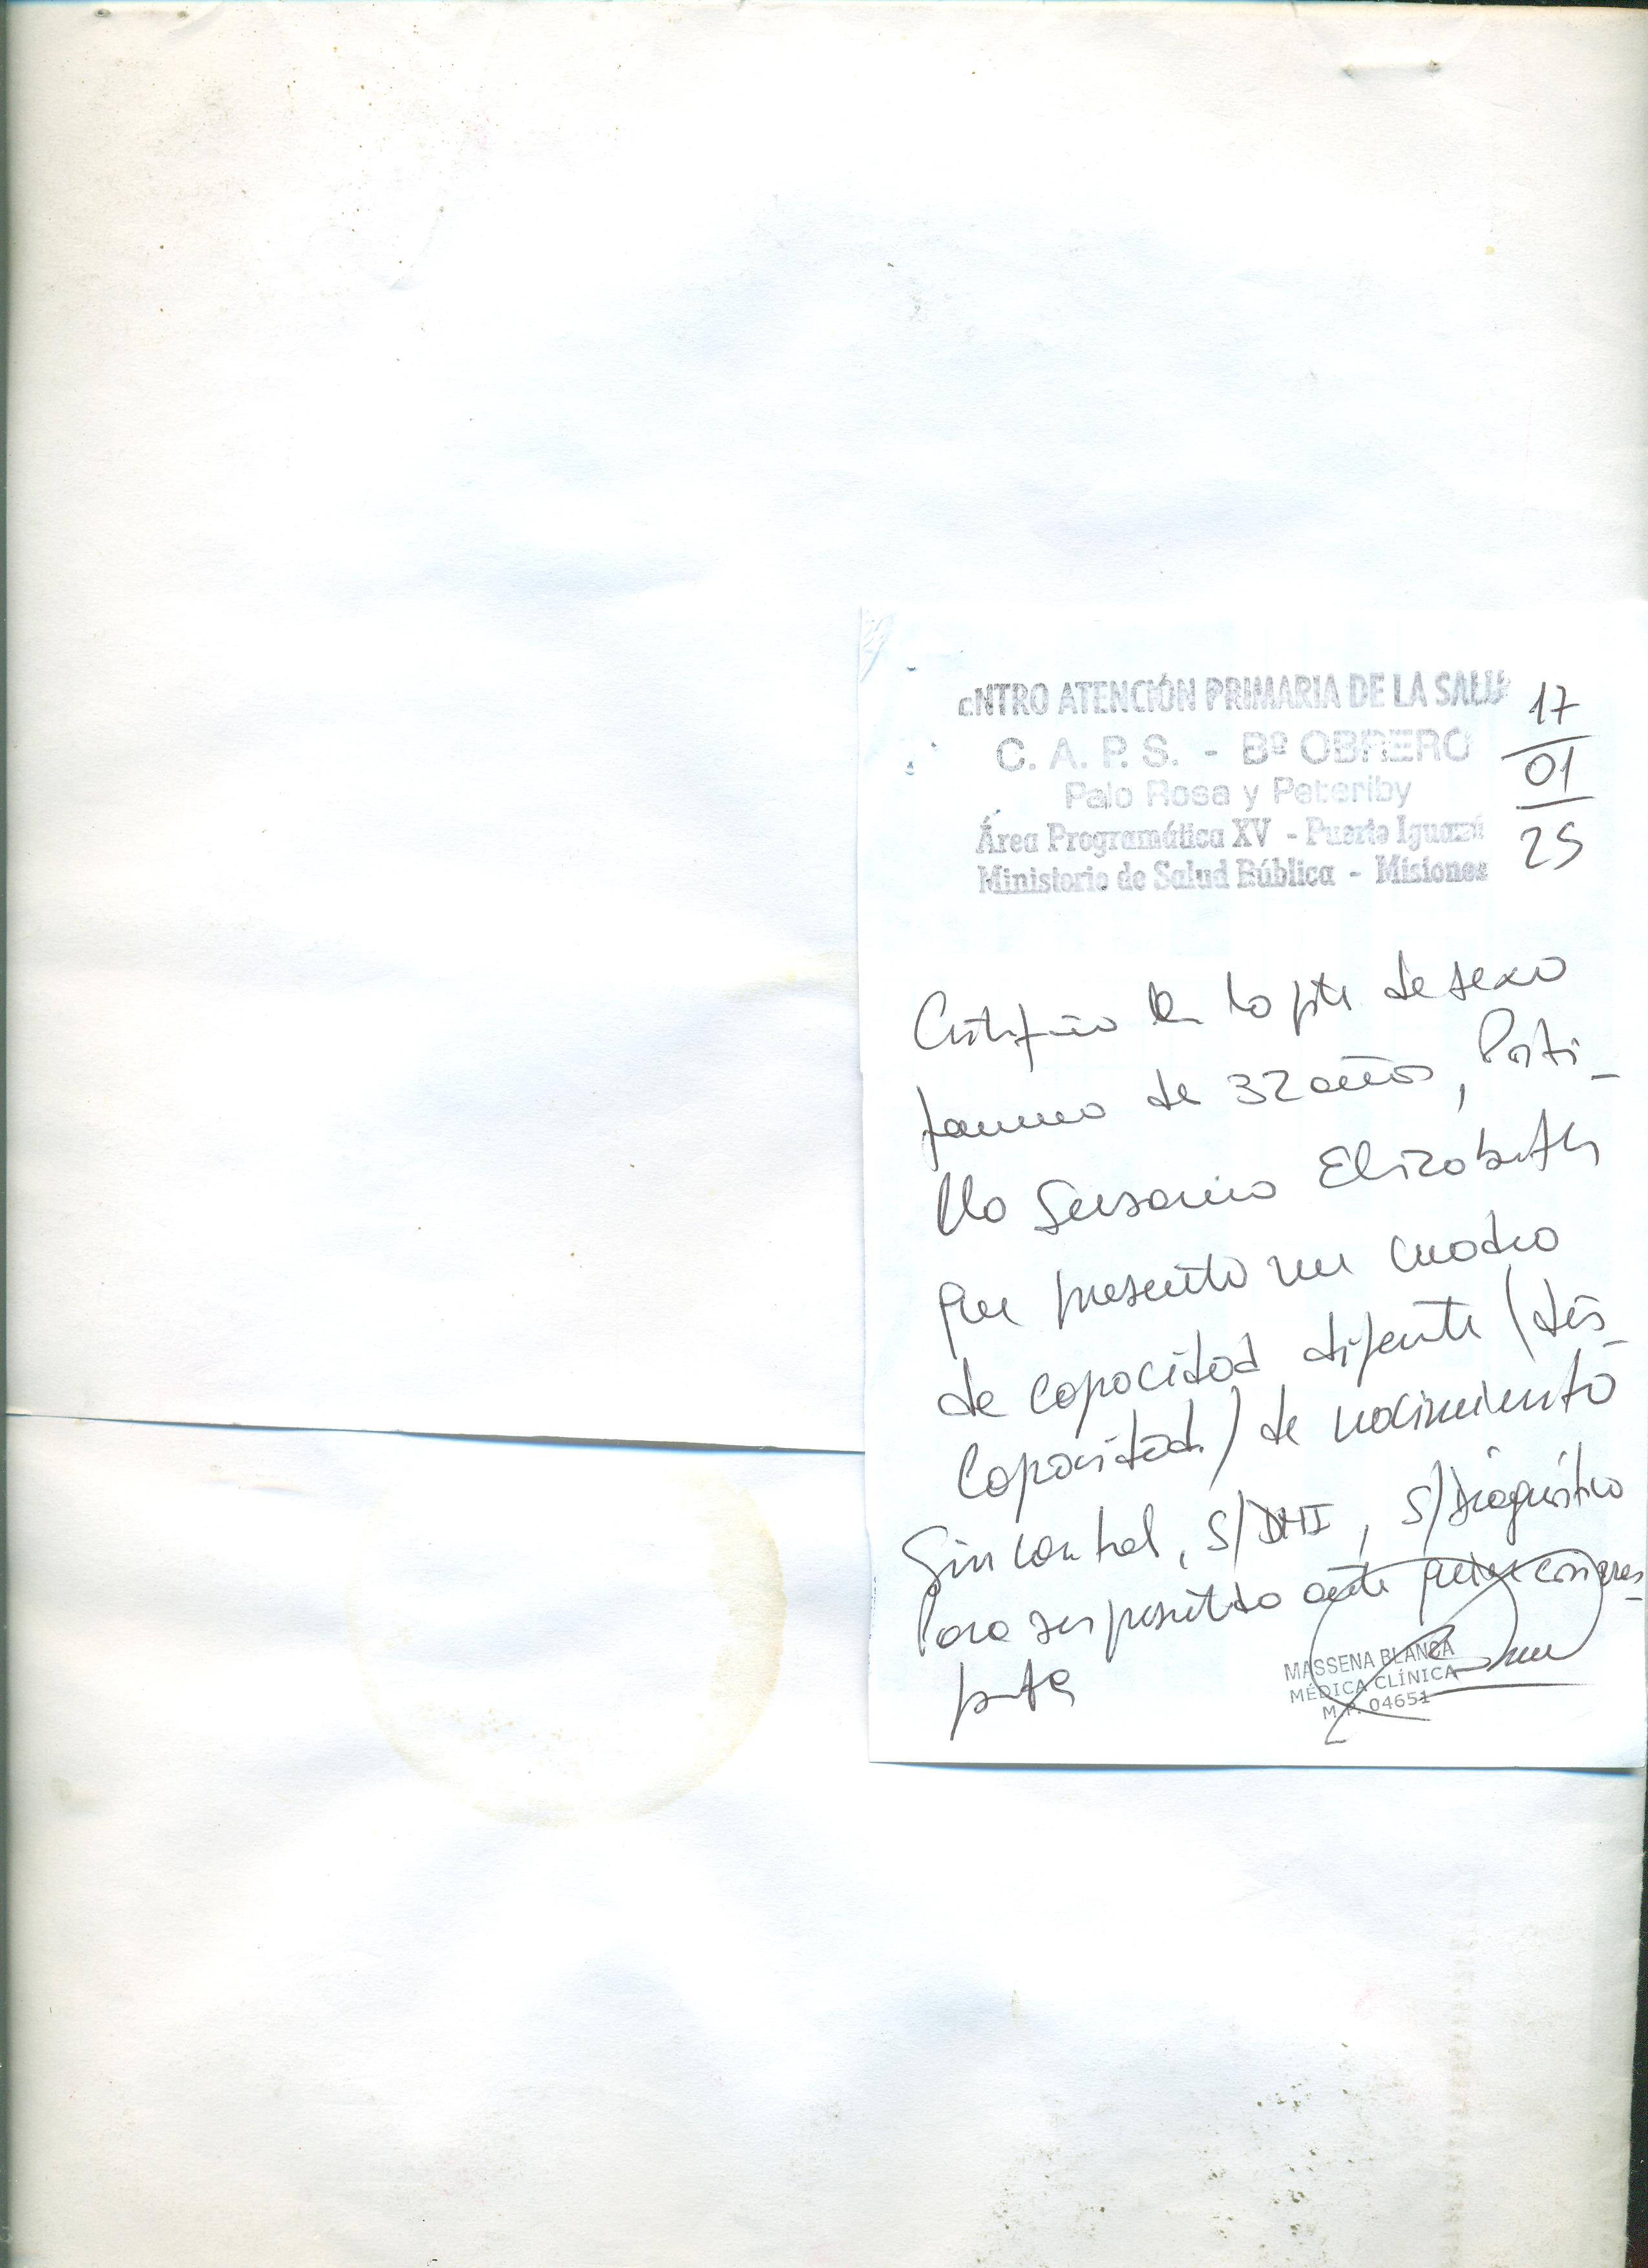 cNTRO ATENCIÓN PRIMARIA DE LA SALUD
C. A. P. S. - Bº OBRERO
Palo Rosa y Peteriby
Área Programática XV - Puerto Iguazú
Ministerio de Salud Pública - Misiones
17
01
25
Certifico la pte de sexo
femenino de 32 años, Porti-
llo Susana Elizabeth
que presenta un cuadro
de capacidad diferente (dis-
capacidad) de nacimiento
Sin control, S/ DNI, S/ Diagnóstico
Para ser presentado ante quien corres-
ponda
MASSENA BLANCA
MÉDICA CLÍNICA
M.P. 04651